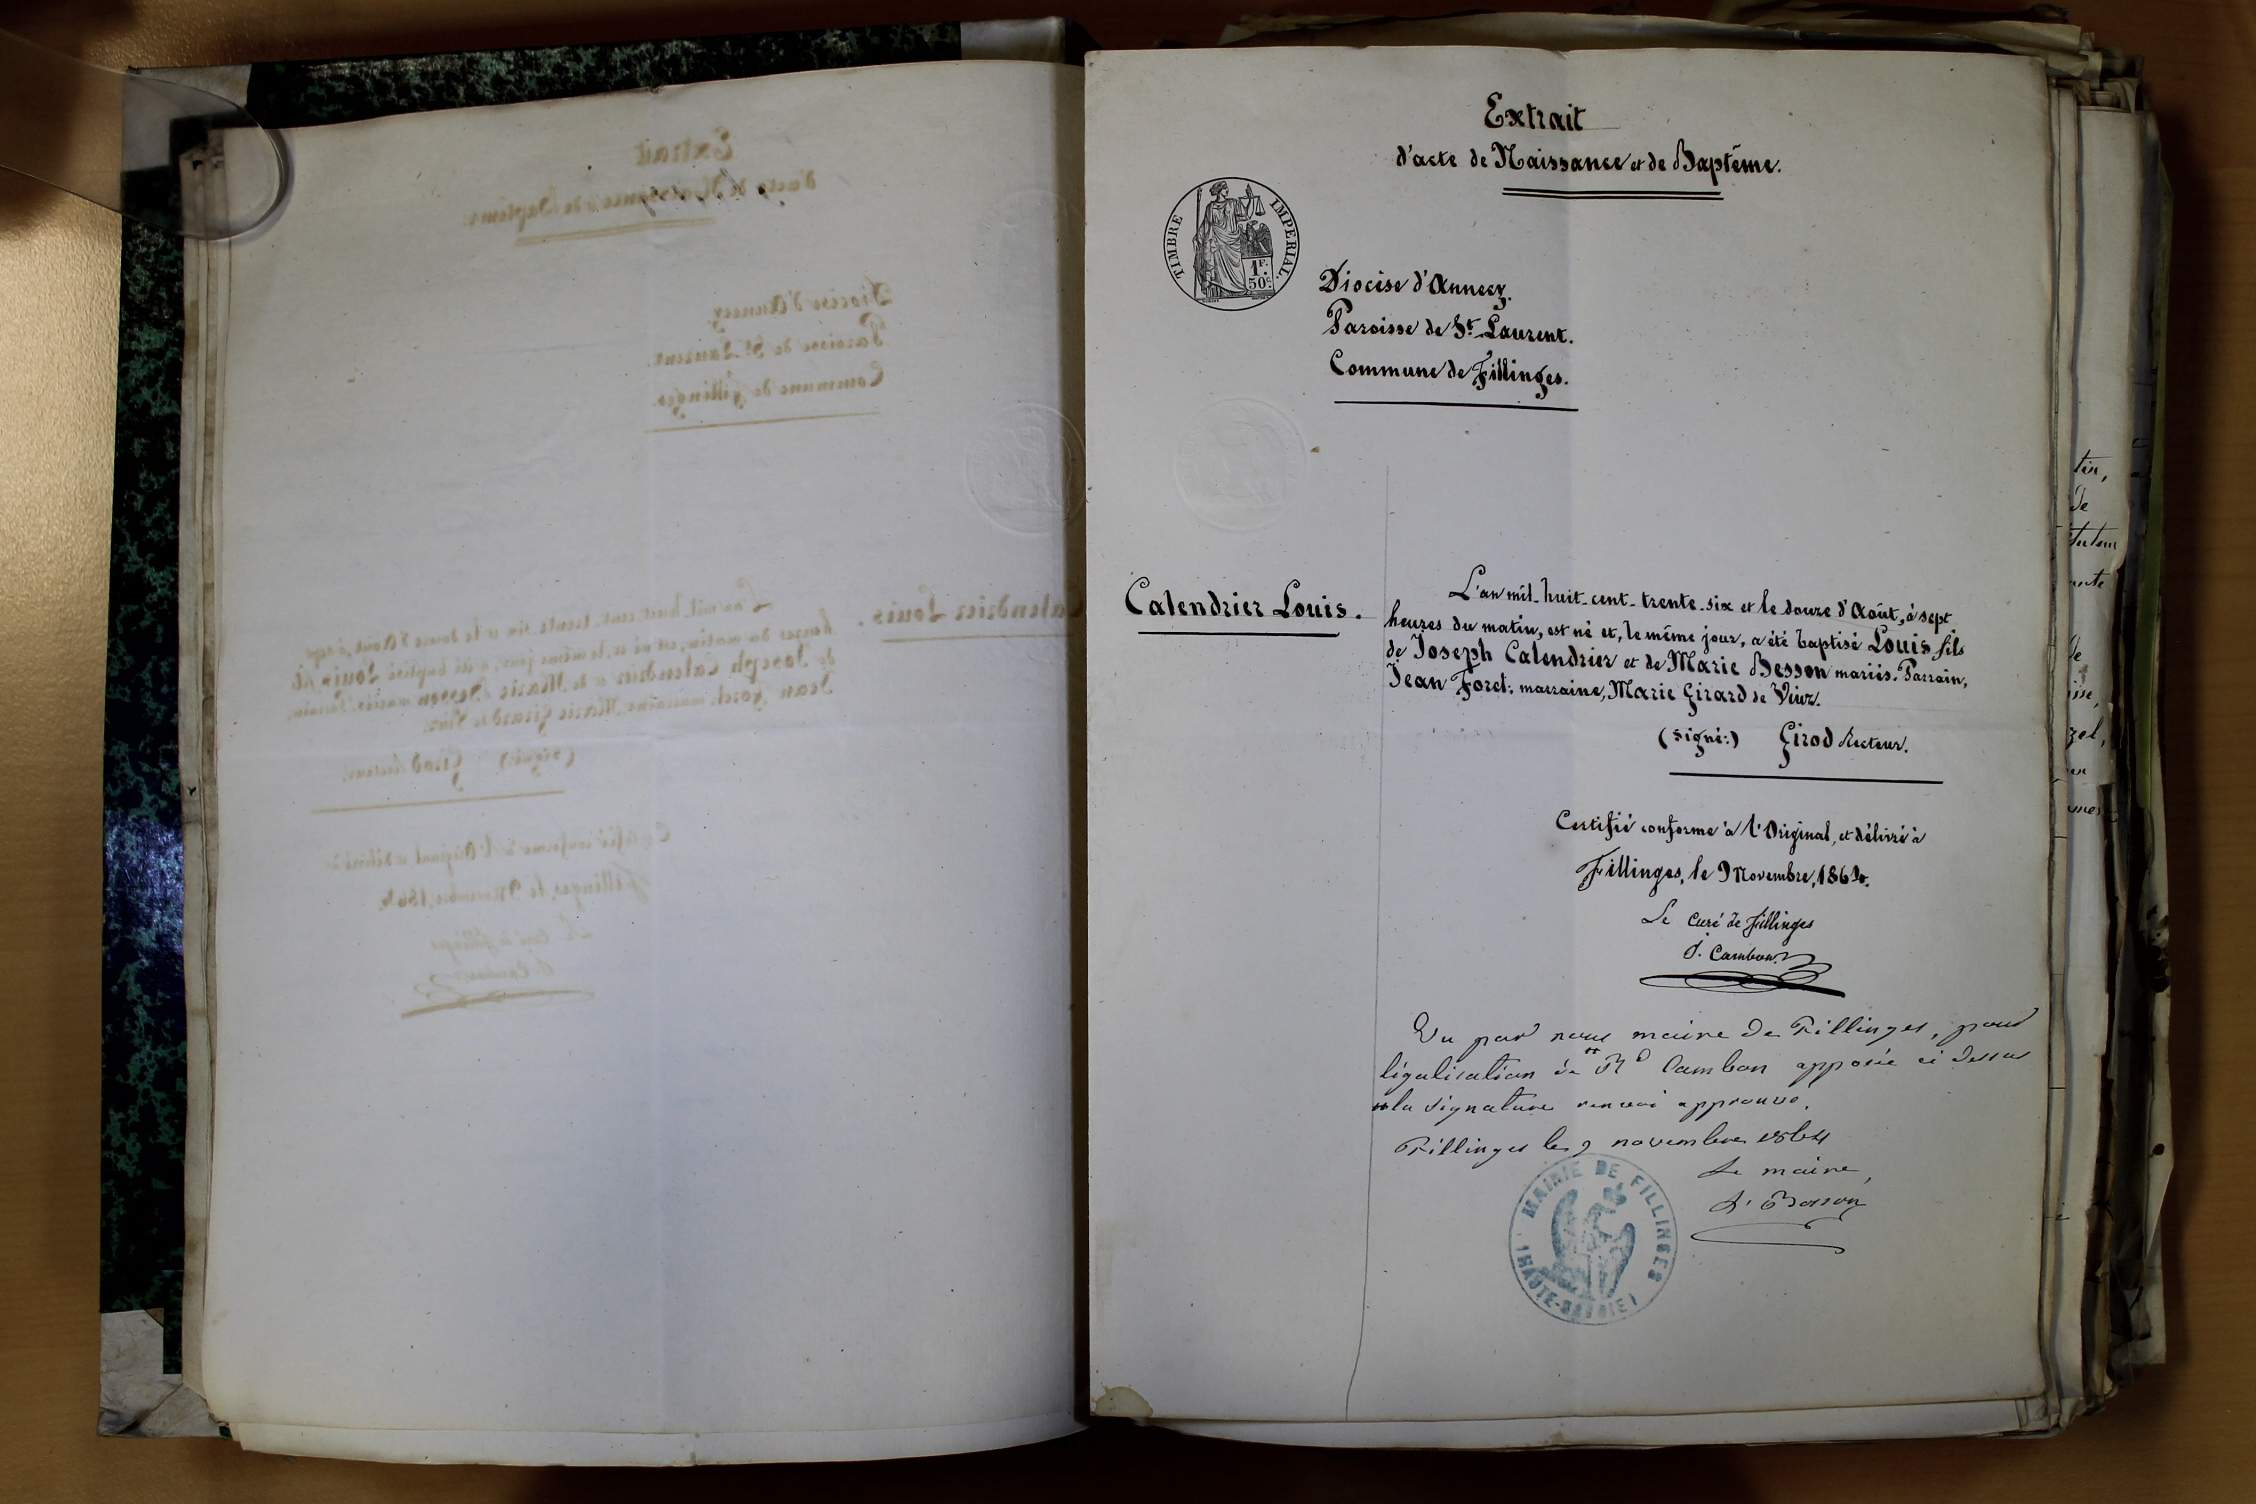 Extrait
d'acte de Naissance et de Baptême.
TIMBRE IMPERIAL.
1F.
50c
Diocèse d'Annecy.
Paroisse de St. Laurent.
Commune de Fillinges.
Calendrier Louis.
L'an mil-huit-cent-trente-six et le douze d'Août, à sept
heures du matin, est né et, le même jour, a été baptisé Louis fils
de Joseph Calendrier et de Marie Besson mariés. Parrain,
Jean Foret; marraine, Marie Girard de Viuz.
(signé:) Girod Recteur.
Certifié conforme à l'Original, et délivré à
Fillinges, le 9 Novembre, 1864.
Le curé de Fillinges
J. Cambon.
Vu par nous maire de Fillinges, pour
légalisation de Rd Cambon apposée ci dessus
la signature renvoi approuvé.
Fillinges le 9 novembre 1864
Le maire,
MAIRIE DE FILLINGES
(HAUTE-SAVOIE)